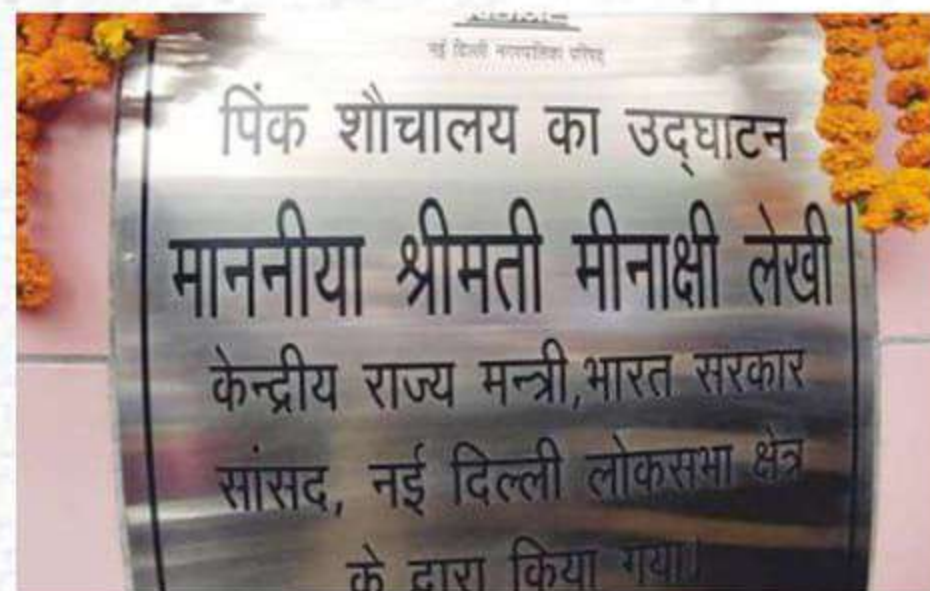 नई दिल्ली नगरपालिका परिषद
पिंक शौचालय का उद्घाटन
माननीया श्रीमती मीनाक्षी लेखी
केन्द्रीय राज्य मन्त्री,भारत सरकार
सांसद, नई दिल्ली लोकसभा क्षेत्र
के द्वारा किया गया।